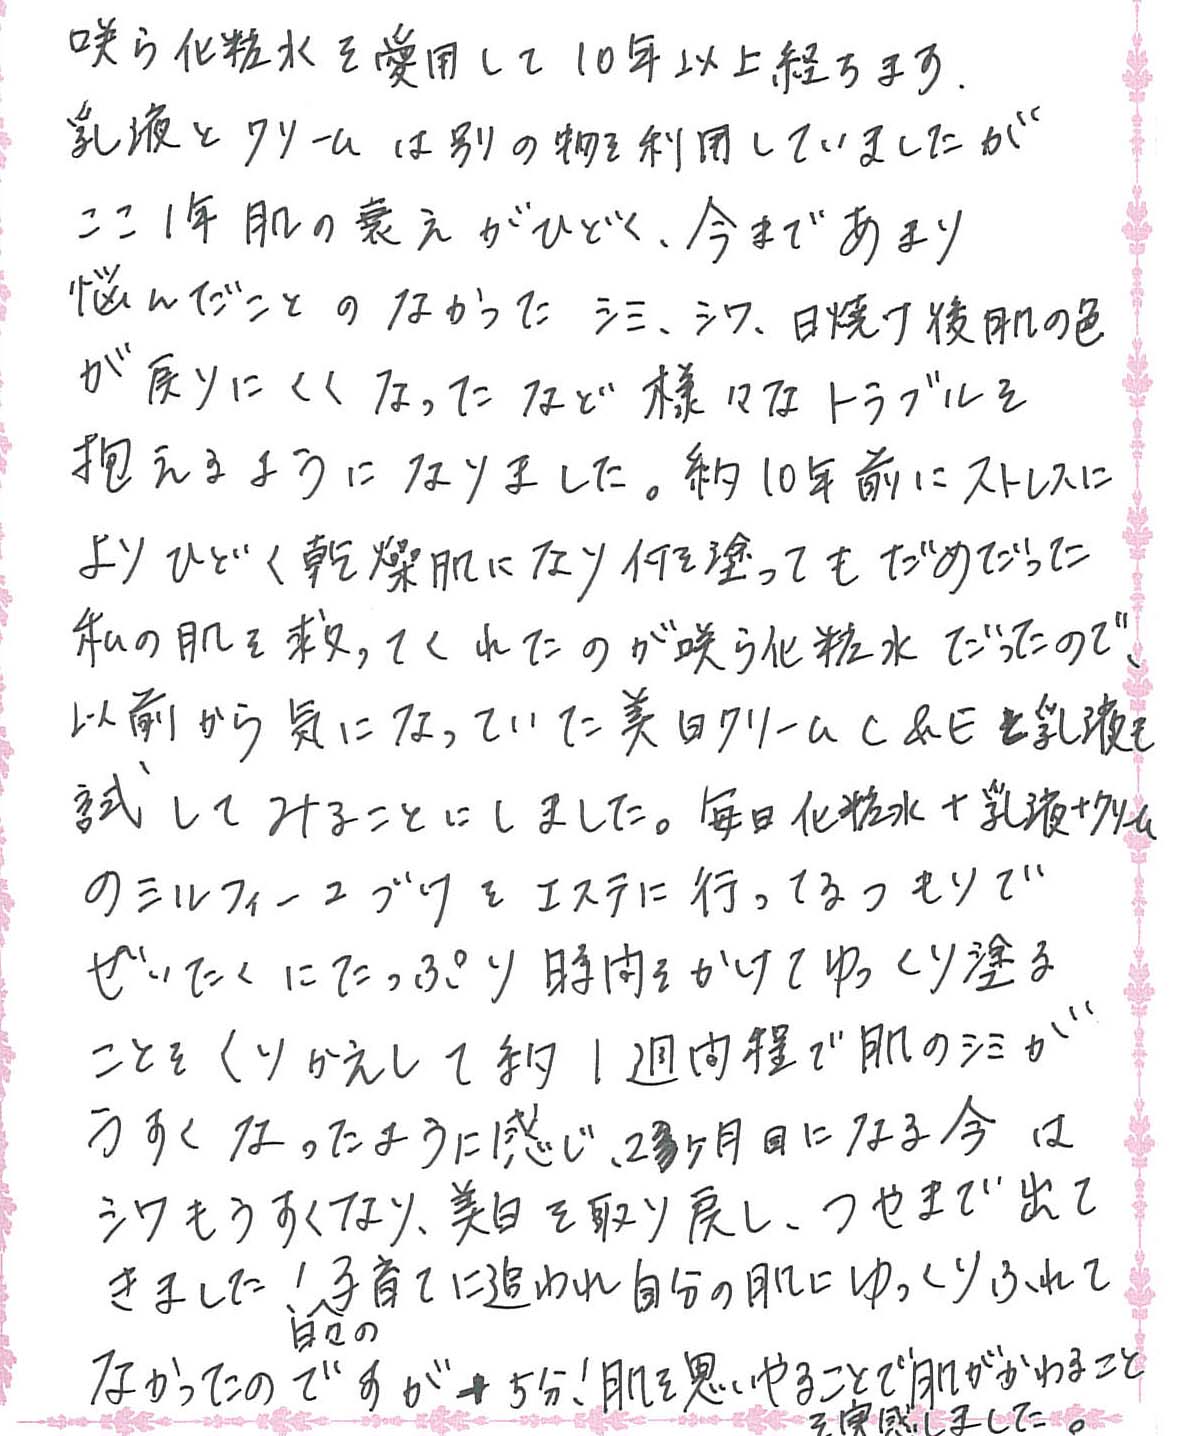 咲ら化粧水を愛用して10年以上経ちます.
乳液とクリームは別の物を利用していましたが
ここ1年肌の衰えがひどく、今まであまり
悩んだことのなかったシミ、シワ、日焼け後肌の色
が戻りにくくなったなど様々なトラブルを
抱えるようになりました。約10年前にストレスに
よりひどく乾燥肌になり何を塗ってもだめだった
私の肌を救ってくれたのが咲ら化粧水だったので、
以前から気になっていた美白クリームC&Eと乳液を
試してみることにしました。毎日化粧水+乳液+クリーム
のミルフィーユづけをエステに行ってるつもりで
ぜいたくにたっぷり時間をかけてゆっくり塗る
ことをくりかえして約1週間程で肌のシミが
うすくなったように感じ、2ヶ月目になる今は
シワもうすくなり、美白を取り戻し、つやまで出て
きました!子育てに追われ自分の肌にゆっくりふれて
日々の
なかったのですが+5分!肌を思いやることで肌がかわること
を実感しました。